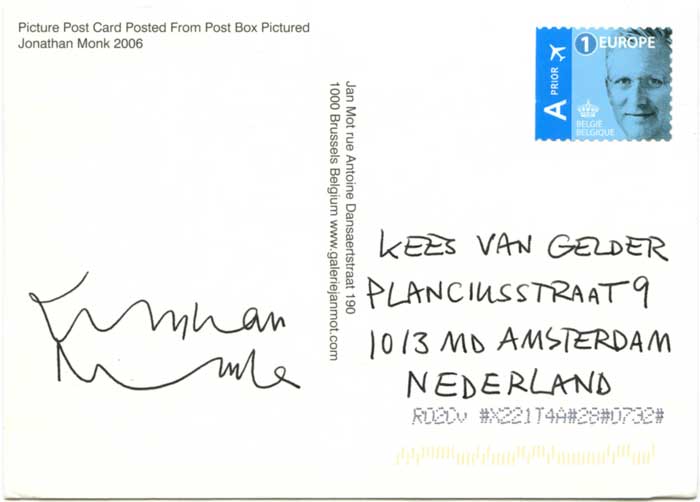 Picture Post Card Posted From Post Box Pictured
Jonathan Monk 2006
1 EUROPE
A PRIOR
BELGIË
BELGIQUE
Jan Mot rue Antoine Dansaertstraat 190
1000 Brussels Belgium www.galeriejanmot.com
KEES VAN GELDER
PLANCIUSSTRAAT 9
1013 MD AMSTERDAM
NEDERLAND